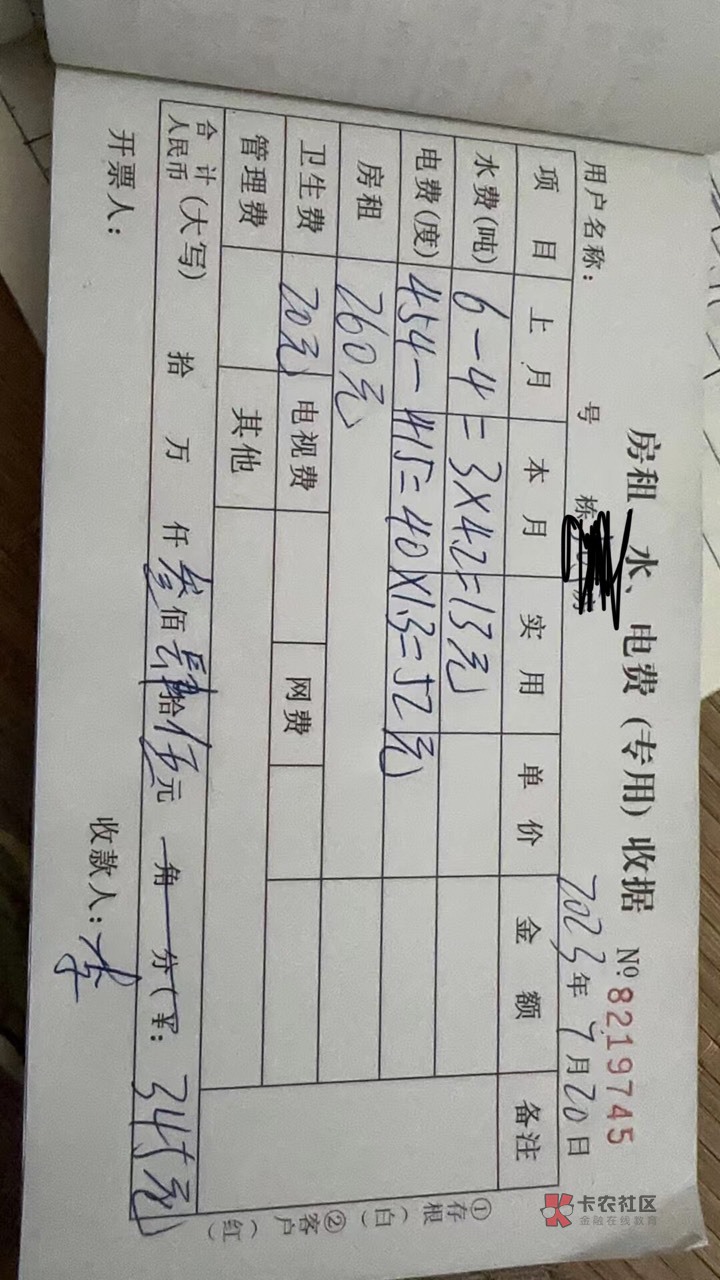 房租、水、电费(专用)收据 № 8219745
用户名称: 号 栋 房 2023年7月20日
项目 上月 本月 实用 单价 金额 备注
水费(吨) 6-4=3×4.2=13元
电费(度) 454-415=40×1.3=52元
房租 260元
卫生费 20元 电视费 网费
管理费 其他
合计(大写)人民币 拾 万 仟 叁佰肆拾伍元 角 分(¥: 345元)
开票人: 收款人: 李
①存根(白) ②客户(红)
卡农社区
金融在线教育